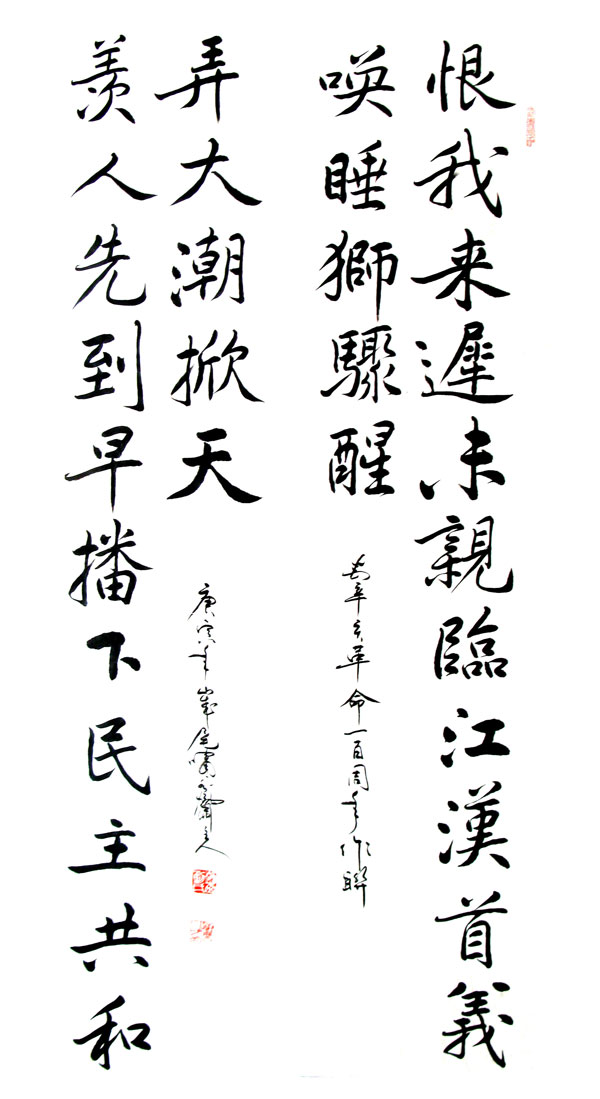 恨我来遲未親臨江漢首義
喚睡獅驟醒
為辛亥革命一百周年作聯
羨人先到早播下民主共和
弄大潮掀天
庚寅年 主人